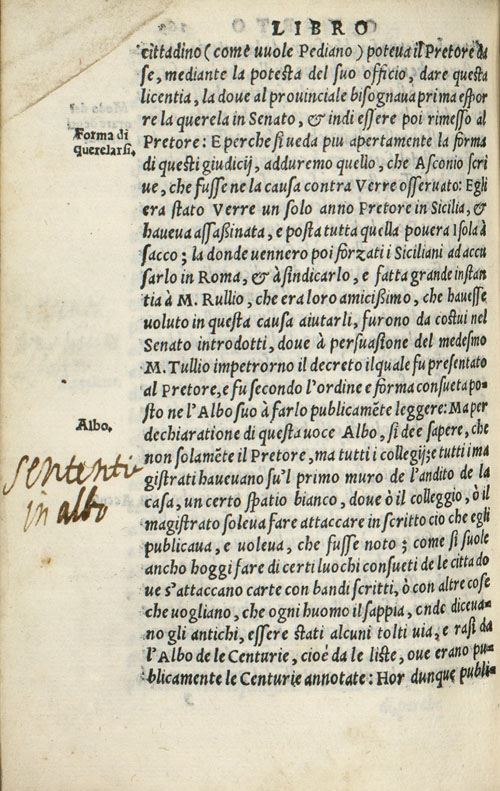 LIBRO
cittadino (come uuole Pediano) poteua il Pretore da
se, mediante la potesta del suo officio, dare questa
licentia, la doue al prouinciale bisognaua prima espor
re la querela in Senato, & indi essere poi rimesso al
Forma di
querelarsi.
Pretore: E perche si ueda piu apertamente la forma
di questi giudicij, adduremo quello, che Asconio scri
ue, che fusse ne la causa contra Verre osseruato: Egli
era stato Verre un solo anno Pretore in Sicilia, &
haueua assaßinata, e posta tutta quella pouera Isola à
sacco; la donde uennero poi forzati i Siciliani ad accu
sarlo in Roma, & à sindicarlo, e fatta grande instan
tia à M. Rullio, che era loro amicißimo, che hauesse
uoluto in questa causa aiutarli, furono da costui nel
Senato introdotti, doue à persuasione del medesmo
M. Tullio impetrorno il decreto ilquale fu presentato
al Pretore, e fu secondo l'ordine e forma consueta po-
sto ne l'Albo suo à farlo publicamẽte leggere: Ma per
Albo.
dechiaratione di questa uoce Albo, si dee sapere, che
non solamẽte il Pretore, ma tutti i collegij; e tutti ma
gistrati haueuano su'l primo muro de l'andito de la
casa, un certo spatio bianco, doue ò il colleggio, ò il
magistrato soleua fare attaccare in scritto cio che egli
publicaua, e uoleua, che fusse noto; come si suole
ancho hoggi fare di certi luochi consueti de le cittado
ue s'attaccano carte con bandi scritti, ò con altre cose
che uogliano, che ogni huomo il sappia, onde diceua-
no gli antichi, essere stati alcuni tolti uia, e rasi da
l'Albo de le Centurie, cioé da le liste, oue erano pu-
blicamente le Centurie annotate: Hor dunque publi-
sententie
in albo